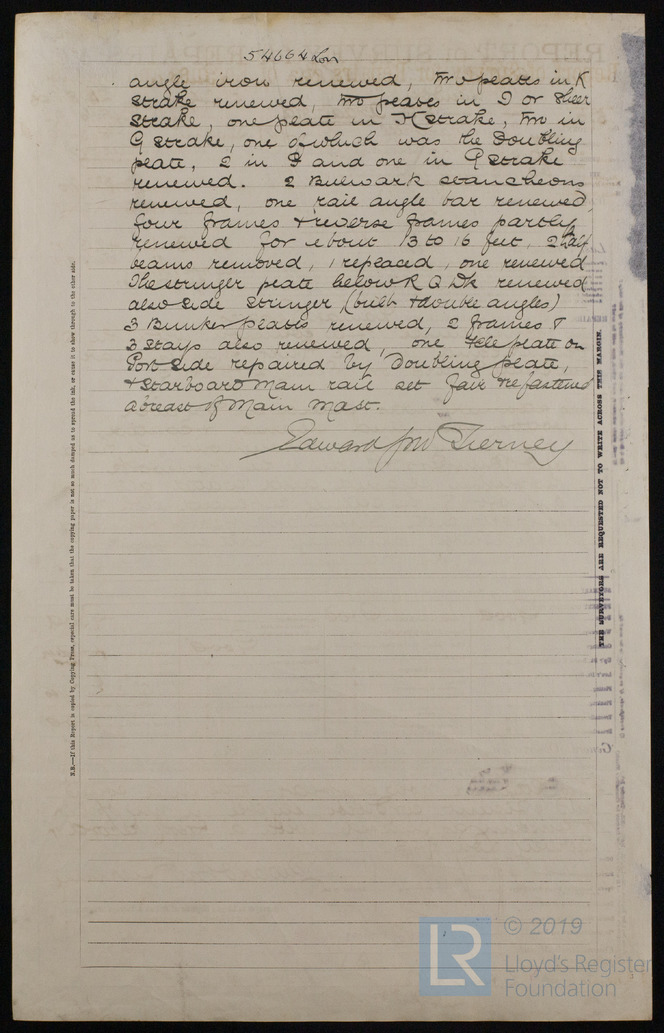 54664 Lon
angle iron renewed, two plates in K
strake renewed, two plates in I or Sheer
strake, one plate in H strake, two in
G strake, one of which was the Doubling
plate, 2 in F and one in G strake
renewed. 2 Bulwark stancheons
renewed, one rail angle bar renewed,
four frames & reverse frames partly
renewed for about 13 to 16 feet, 2 half
beams removed, 1 replaced, one renewed
The stringer plate below R Q Dk renewed
also side stringer (built & double angles)
3 Bunker plates renewed, 2 frames &
3 stays also renewed, one plate on
Port side repaired by Doubling plate,
& Starboard Main rail set fair & refastened
abreast of Main Mast.
Edward Tierney
N.B.—If this Report is copied by Copying Press, especial care must be taken that the copying paper is not so much damped as to spread the ink, or cause it to show through to the other side.
THE SURVEYORS ARE REQUESTED NOT TO WRITE ACROSS THIS MARGIN.
LR
© 2019
Lloyd's Register
Foundation